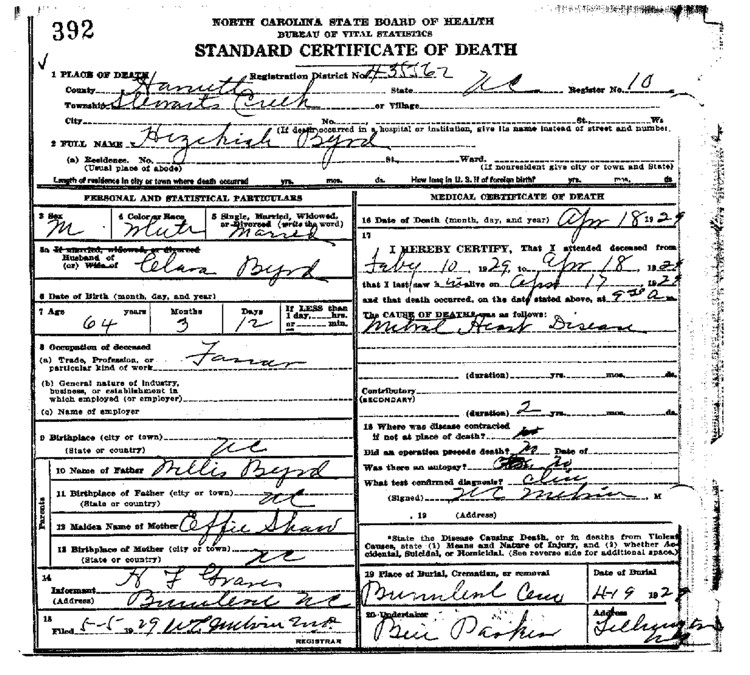 392
NORTH CAROLINA STATE BOARD OF HEALTH
BUREAU OF VITAL STATISTICS
STANDARD CERTIFICATE OF DEATH
1 PLACE OF DEATH Registration District No. 43-5567
County Harnett State NC Register No. 10
Township Stewarts Creek or Village
City No. St. W
(If death occurred in a hospital or institution, give its name instead of street and number.
2 FULL NAME Hezekiah Byrd
(a) Residence. No. St. Ward.
(Usual place of abode) (If nonresident give city or town and State)
Length of residence in city or town where death occurred yrs. mos. ds. How long in U. S. if of foreign birth? yrs. mos. ds
PERSONAL AND STATISTICAL PARTICULARS
3 Sex 4 Color or Race 5 Single, Married, Widowed, or Divorced (write the word)
M. White Married
5a If married, widowed, or divorced
Husband of
(or) Wife of Clara Byrd
6 Date of Birth (month, day, and year)
7 Age years Months Days If LESS than
1 day, hrs.
or min.
64 3 12
8 Occupation of deceased
(a) Trade, Profession, or
particular kind of work Farmer
(b) General nature of industry,
business, or establishment in
which employed (or employer)
(c) Name of employer
9 Birthplace (city or town)
(State or country) NC
Parents
10 Name of Father Willis Byrd
11 Birthplace of Father (city or town)
(State or country) NC
12 Maiden Name of Mother Effie Shaw
13 Birthplace of Mother (city or town)
(State or country) NC
14
Informant H F
(Address) Bunnlevel NC
15
Filed 5-5 1929 W L Melvin
REGISTRAR
MEDICAL CERTIFICATE OF DEATH
16 Date of Death (month, day, and year) Apr 18 1929
17
I HEREBY CERTIFY, That I attended deceased from
10 1929 to Apr 18 1929
that I last saw h alive on Apr 17 1929
and that death occurred, on the date stated above, at 9 a
The CAUSE OF DEATH was as follows:
Mitral Heart Disease
(duration) yrs. mos. ds.
Contributory
(SECONDARY)
(duration) 2 yrs. mos. ds.
18 Where was disease contracted
if not at place of death?
Did an operation precede death? No Date of
Was there an autopsy? No
What test confirmed diagnosis?
(Signed) Melvin M
, 19 (Address)
*State the Disease Causing Death, or in deaths from Violent
Causes, state (1) Means and Nature of Injury, and (2) whether Ac-
cidental, Suicidal, or Homicidal. (See reverse side for additional space.)
19 Place of Burial, Cremation, or removal Date of Burial
Bunnlevel Cem 4-19 1929
20 Undertaker Address
Parker Lillington
NC